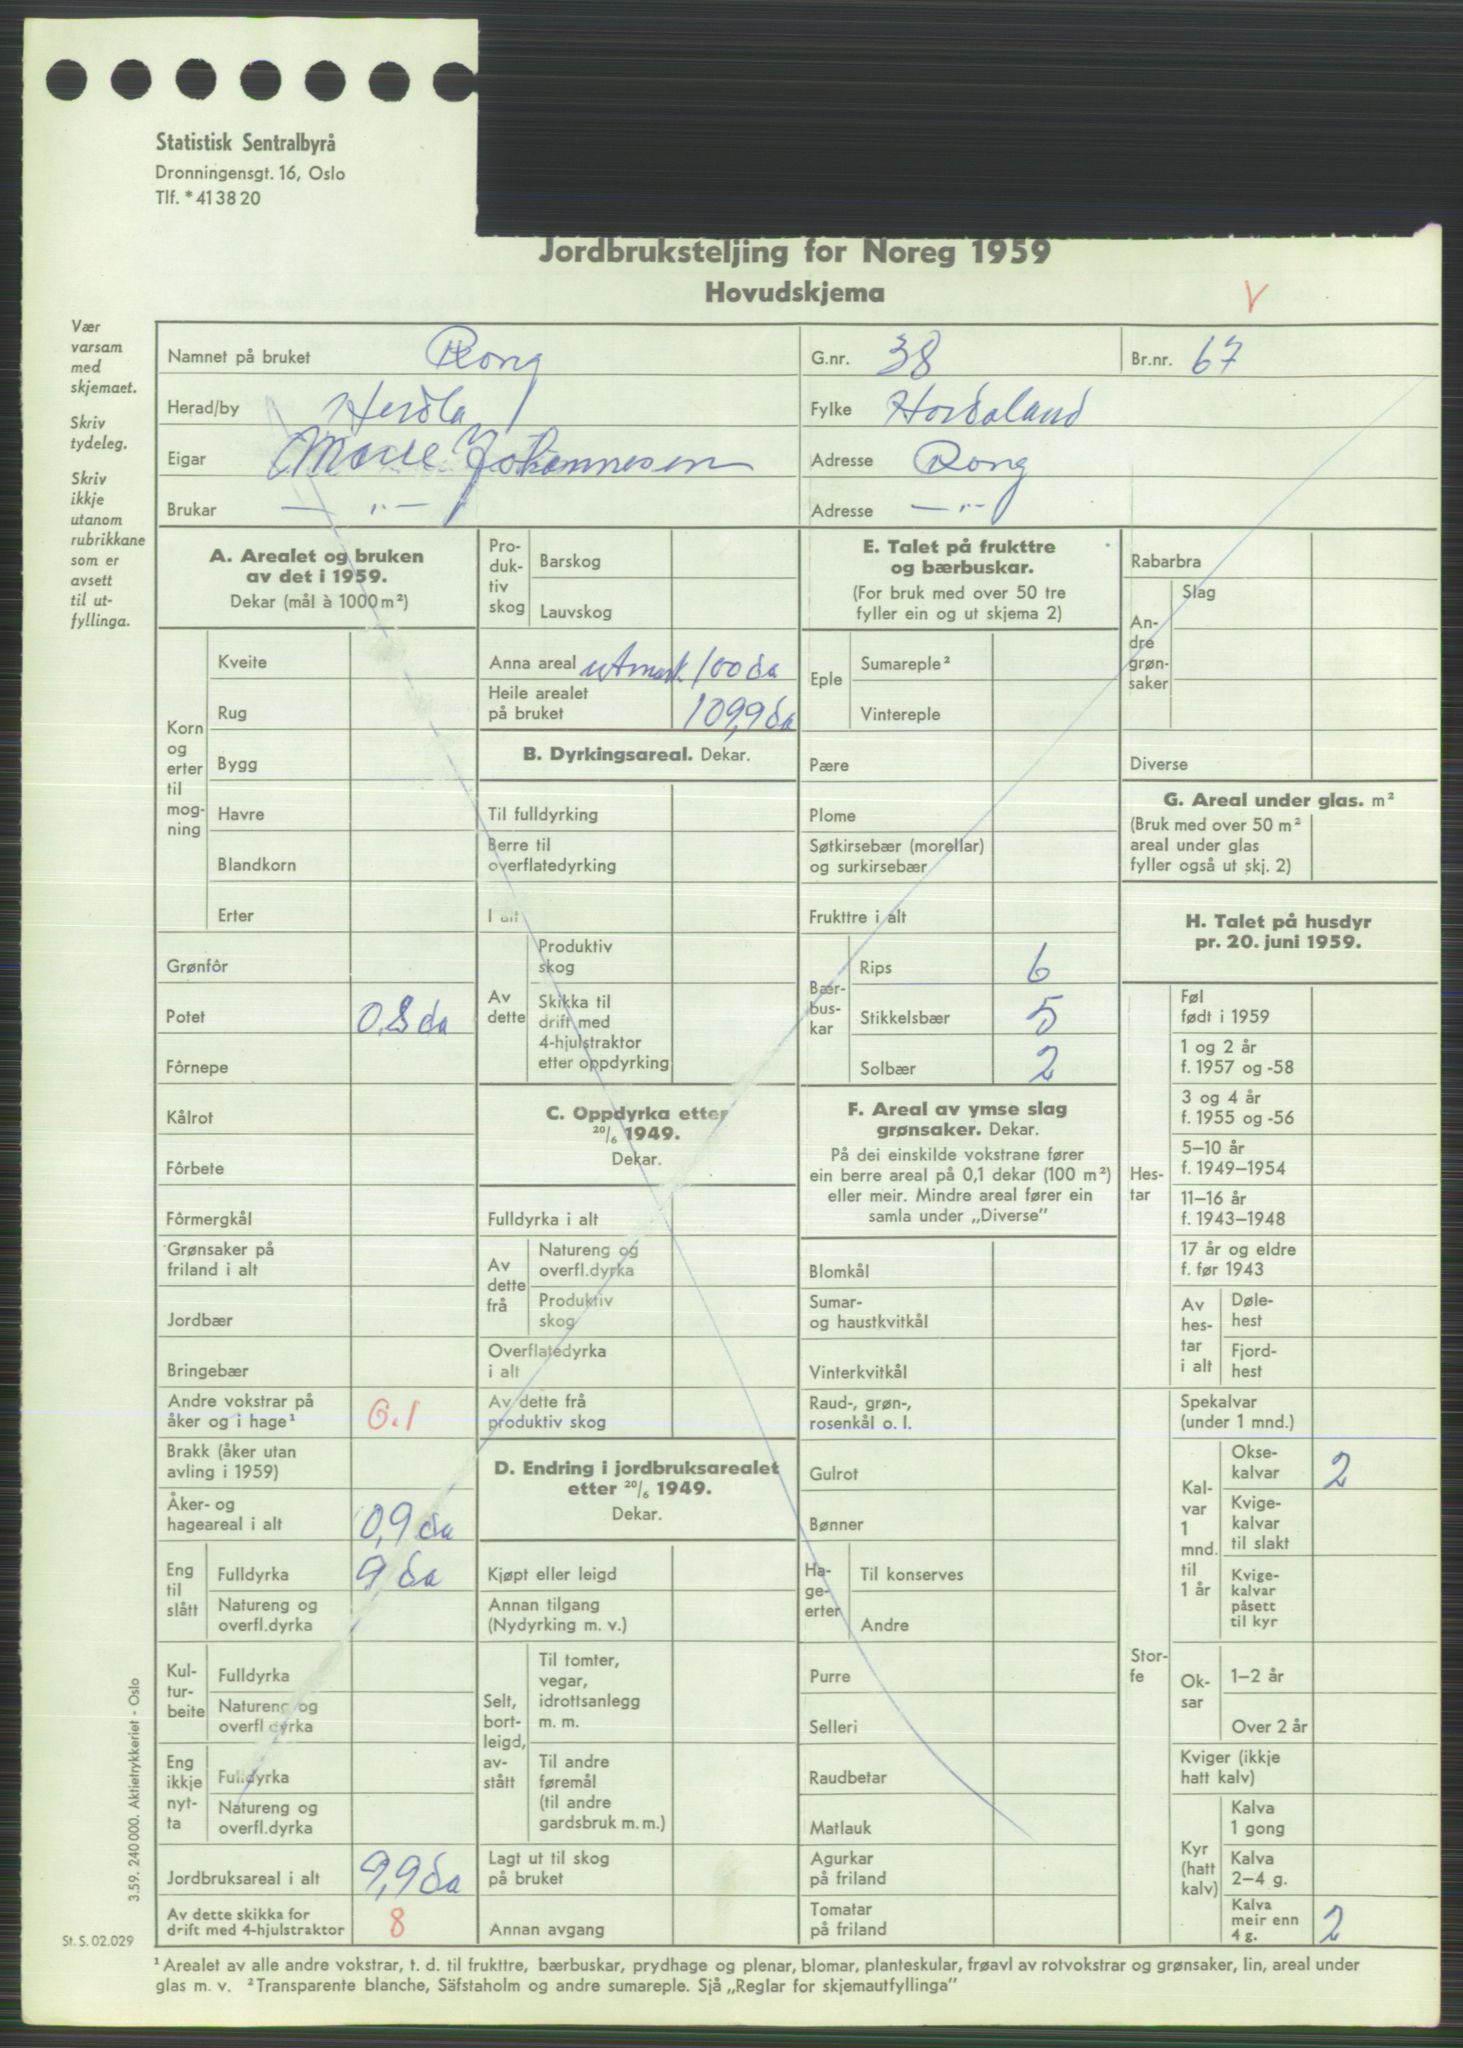 Statistisk Sentralbyrå
Dronningensgt. 16, Oslo
Tlf. * 41 38 20
Jordbruksteljing for Noreg 1959
Hovudskjema
V
Vær
varsam
med
skjemaet.
Skriv
tydeleg.
Skriv
ikkje
utanom
rubrikkane
som er
avsett
til ut-
fyllinga.
Namnet på bruket Rong G.nr. 38 Br.nr. 67
Herad/by Herdla Fylke Hordaland
Eigar Johannesen Adresse Rong
Brukar — „ — Adresse — „ —
A. Arealet og bruken
av det i 1959.
Dekar (mål à 1000 m²)
Korn
og
erter
til
mog-
ning
Kveite
Rug
Bygg
Havre
Blandkorn
Erter
Grønfôr
Potet 0,8 da
Fôrnepe
Kålrot
Fôrbete
Fôrmergkål
Grønsaker på
friland i alt
Jordbær
Bringebær
Andre vokstrar på
åker og i hage¹ 0.1
Brakk (åker utan
avling i 1959)
Åker- og
hageareal i alt 0,9 da
Eng
til
slått
Fulldyrka 9 da
Natureng og
overfl.dyrka
Kul-
tur-
beite
Fulldyrka
Natureng og
overfl dyrka
Eng
ikkje
nyt-
ta
Fulldyrka
Natureng og
overfl.dyrka
Jordbruksareal i alt 9,9 da
Av dette skikka for
drift med 4-hjulstraktor 8
Pro-
duk-
tiv
skog
Barskog
Lauvskog
Anna areal utmark 100 da
Heile arealet
på bruket 109,9 da
B. Dyrkingsareal. Dekar.
Til fulldyrking
Berre til
overflatedyrking
I alt
Av
dette
Produktiv
skog
Skikka til
drift med
4-hjulstraktor
etter oppdyrking
C. Oppdyrka etter
²⁰/₆ 1949.
Dekar.
Fulldyrka i alt
Av
dette
frå
Natureng og
overfl.dyrka
Produktiv
skog
Overflatedyrka
i alt
Av dette frå
produktiv skog
D. Endring i jordbruksarealet
etter ²⁰/₆ 1949.
Dekar.
Kjøpt eller leigd
Annan tilgang
(Nydyrking m. v.)
Selt,
bort-
leigd,
av-
stått
Til tomter,
vegar,
idrottsanlegg
m. m.
Til andre
føremål
(til andre
gardsbruk m. m.)
Lagt ut til skog
på bruket
Annan avgang
E. Talet på frukttre
og bærbuskar.
(For bruk med over 50 tre
fyller ein og ut skjema 2)
Eple
Sumareple²
Vintereple
Pære
Plome
Søtkirsebær (morellar)
og surkirsebær
Frukttre i alt
Bær-
bus-
kar
Rips 6
Stikkelsbær 5
Solbær 2
F. Areal av ymse slag
grønsaker. Dekar.
På dei einskilde vokstrane fører
ein berre areal på 0,1 dekar (100 m²)
eller meir. Mindre areal fører ein
samla under „Diverse”
Blomkål
Sumar-
og haustkvitkål
Vinterkvitkål
Raud-, grøn-,
rosenkål o. l.
Gulrot
Bønner
Ha-
ge-
erter
Til konserves
Andre
Purre
Selleri
Raudbetar
Matlauk
Agurkar
på friland
Tomatar
på friland
Rabarbra
An-
dre
grøn-
saker
Slag
Diverse
G. Areal under glas. m²
(Bruk med over 50 m²
areal under glas
fyller også ut skj. 2)
H. Talet på husdyr
pr. 20. juni 1959.
Hes-
tar
Føl
født i 1959
1 og 2 år
f. 1957 og -58
3 og 4 år
f. 1955 og -56
5–10 år
f. 1949–1954
11–16 år
f. 1943–1948
17 år og eldre
f. før 1943
Av
hes-
tar
i alt
Døle-
hest
Fjord-
hest
Stor-
fe
Spekalvar
(under 1 mnd.)
Kal-
var
1
mnd.
til
1 år
Okse-
kalvar 2
Kvige-
kalvar
til slakt
Kvige-
kalvar
påsett
til kyr
Ok-
sar
1–2 år
Over 2 år
Kviger (ikkje
hatt kalv)
Kyr
(hatt
kalv)
Kalva
1 gong
Kalva
2–4 g.
Kalva
meir enn
4 g. 2
3.59. 240 000. Aktietrykkeriet - Oslo
St. S. 02.029
¹ Arealet av alle andre vokstrar, t. d. til frukttre, bærbuskar, prydhage og plenar, blomar, planteskular, frøavl av rotvokstrar og grønsaker, lin, areal under
glas m. v. ² Transparente blanche, Säfstaholm og andre sumareple. Sjå „Reglar for skjemautfyllinga”